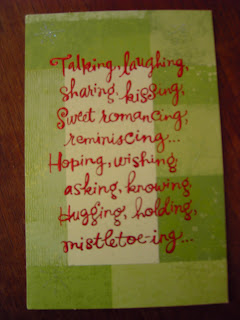 Talking, laughing,
Sharing, kissing,
Sweet romancing,
reminiscing...
Hoping, wishing,
asking, knowing,
Hugging, holding,
mistletoe-ing...